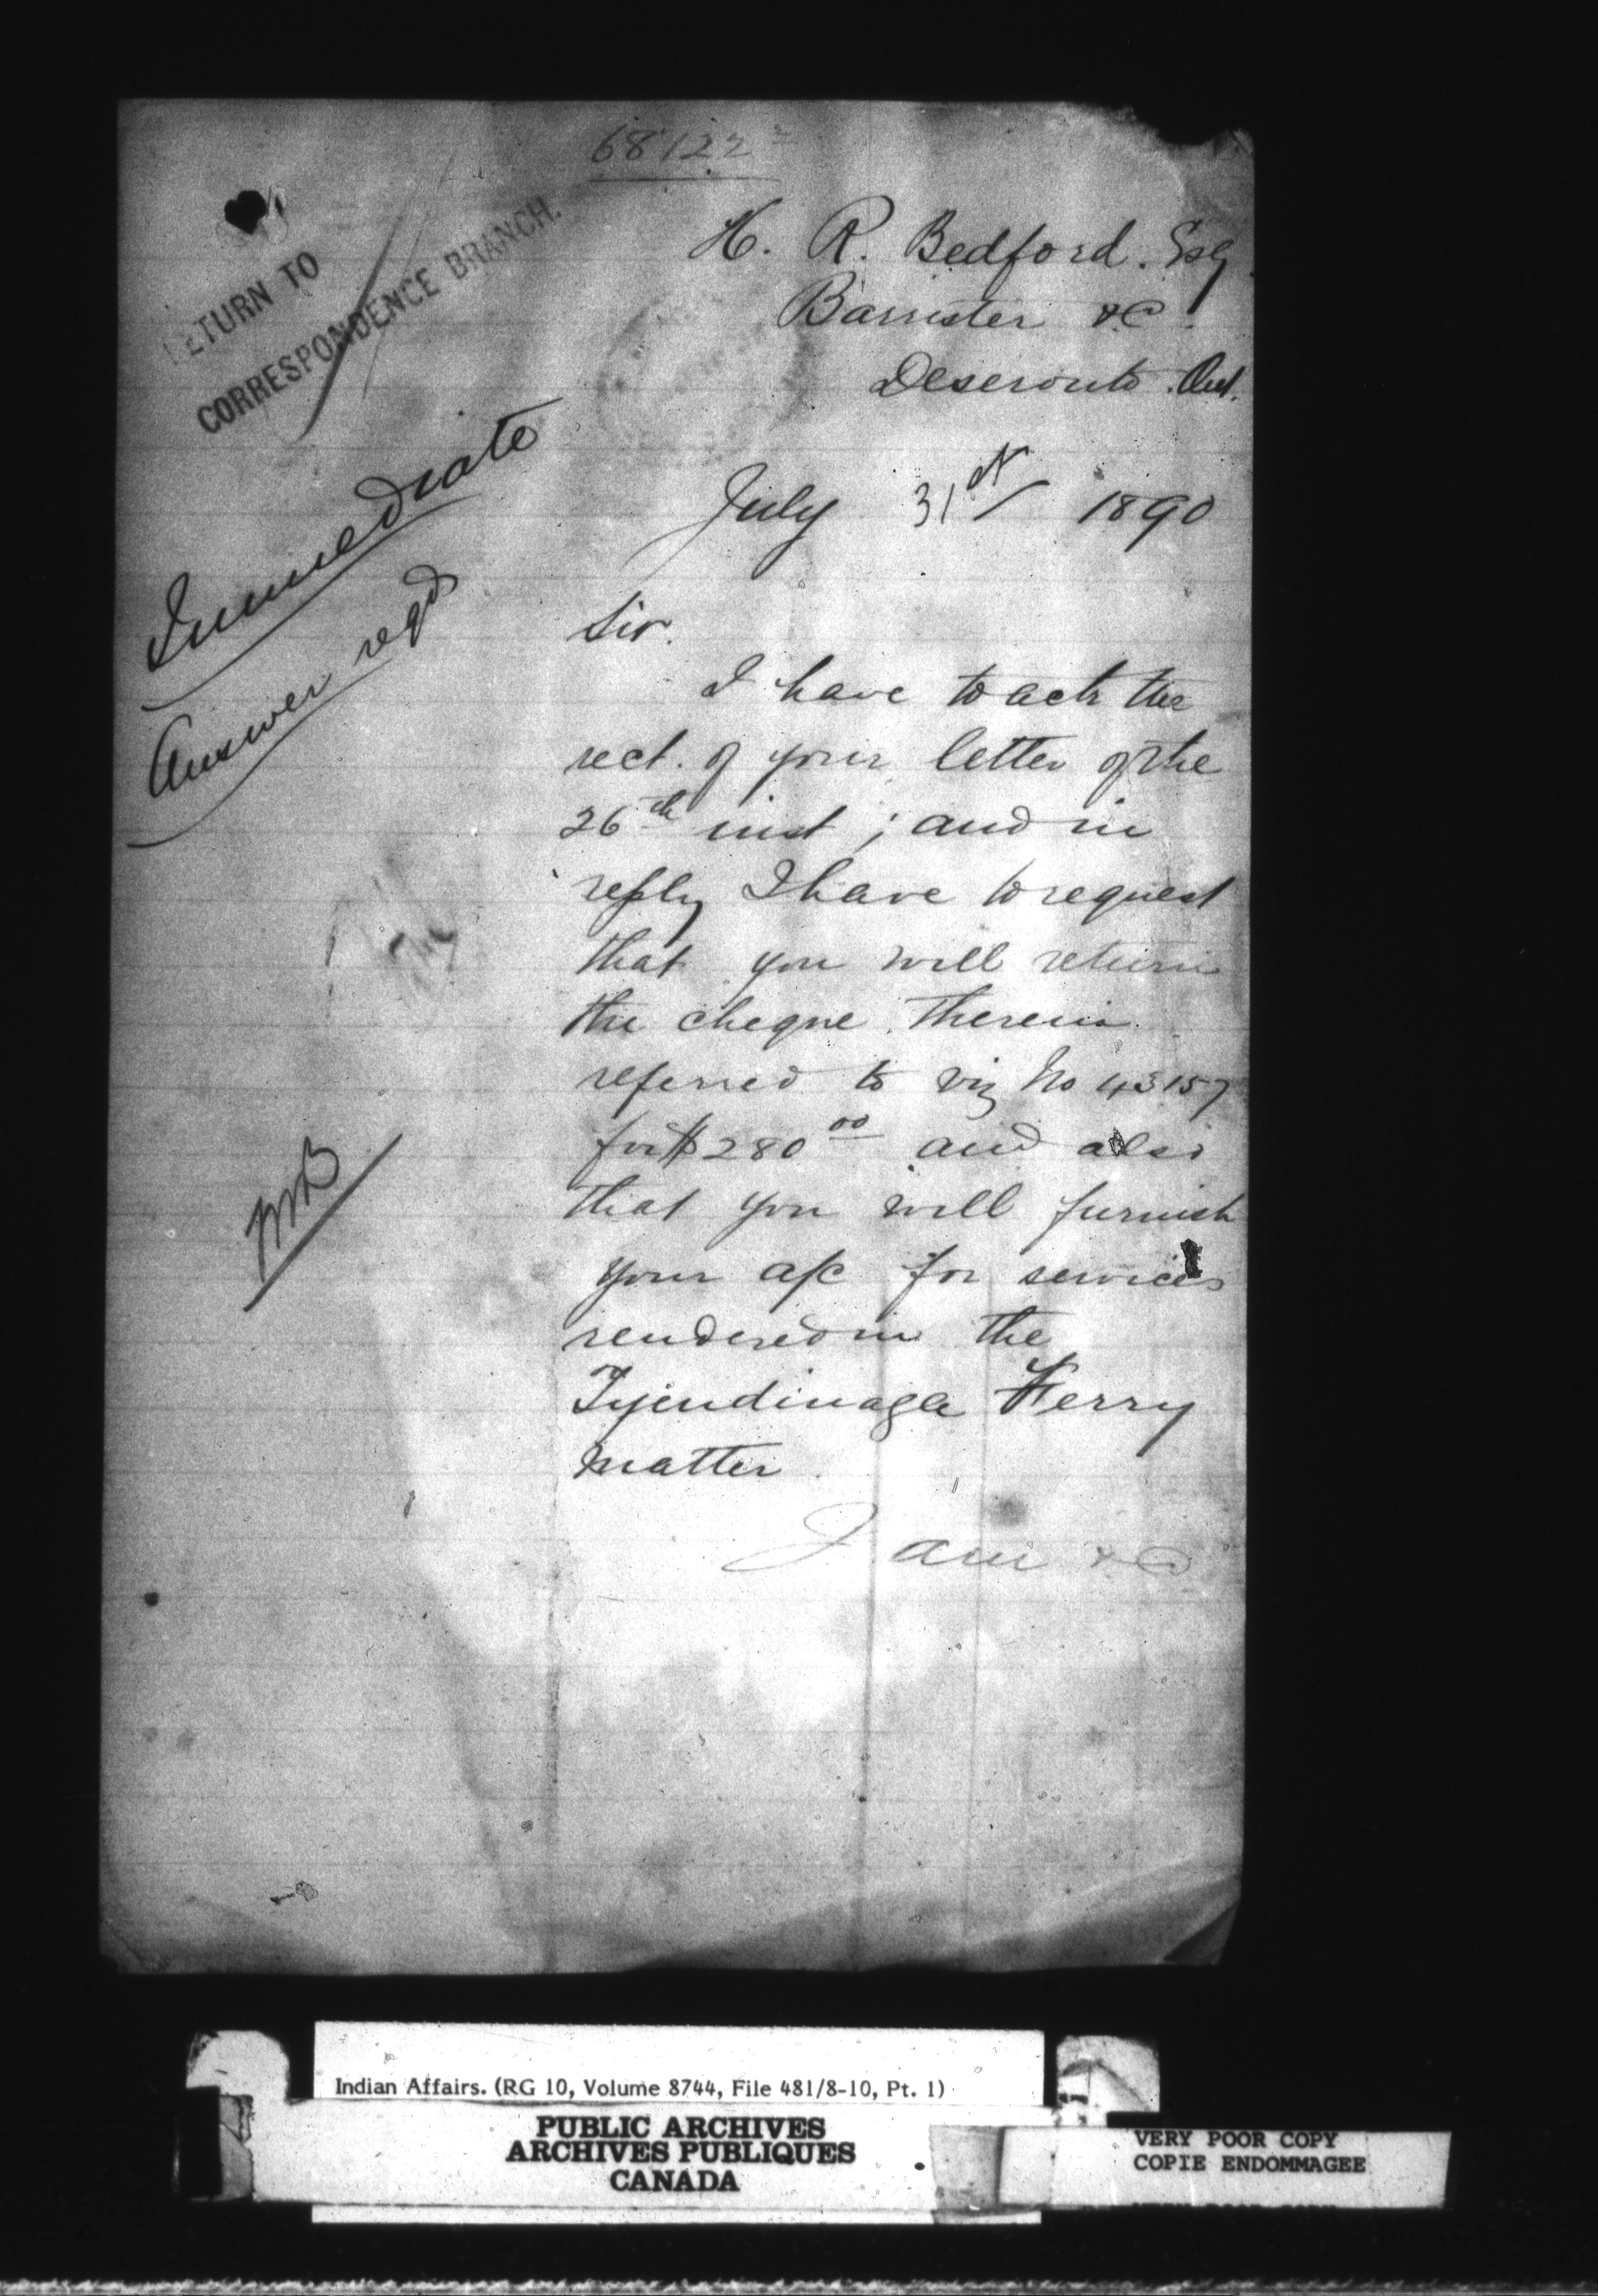 68122
RETURN TO
CORRESPONDENCE BRANCH.
H. R. Bedford. Esq
Barrister &c.
Deseronto. Ont.
Immediate
Answer reqd
July 31st 1890
Sir.
I have to ack the
rect. of your letter of the
26th inst; and in
reply I have to request
that you will return
the cheque therein
referred to viz No 43157
for $280 00 and also
that you will furnish
your a/c for services
rendered in the
Tyendinaga Ferry
matter.
I am &c
Indian Affairs. (RG 10, Volume 8744, File 481/8-10, Pt. 1)
PUBLIC ARCHIVES
ARCHIVES PUBLIQUES
CANADA
VERY POOR COPY
COPIE ENDOMMAGEE